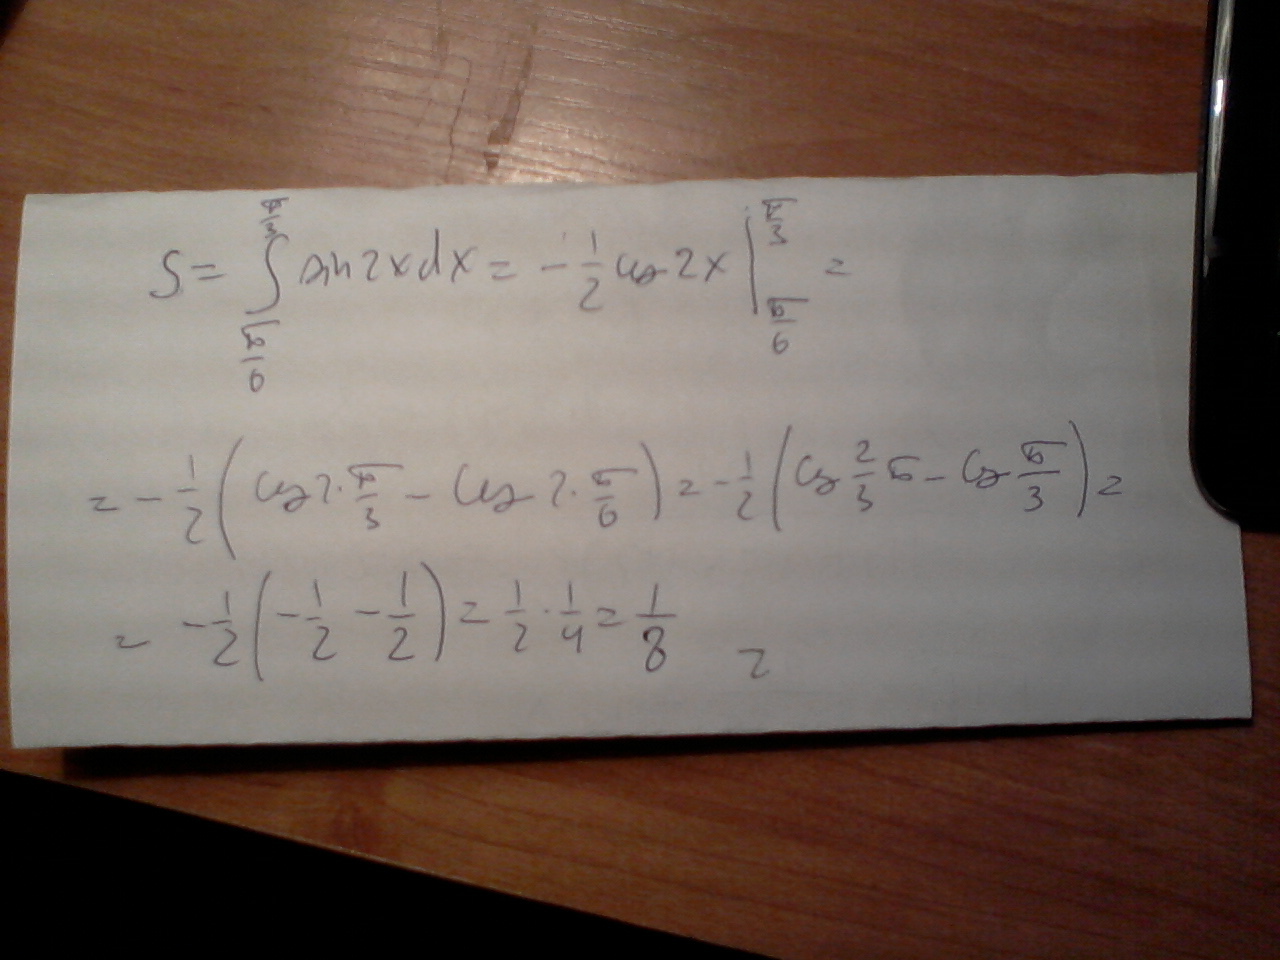 S = ∫_{π/6}^{π/3} sin 2x dx = -1/2 cos 2x |_{π/6}^{π/3} =
= -1/2 (cos 2·π/3 - cos 2·π/6) = -1/2 (cos 2/3 π - cos π/3) =
= -1/2 (-1/2 - 1/2) = 1/2 · 1/4 = 1/8 =